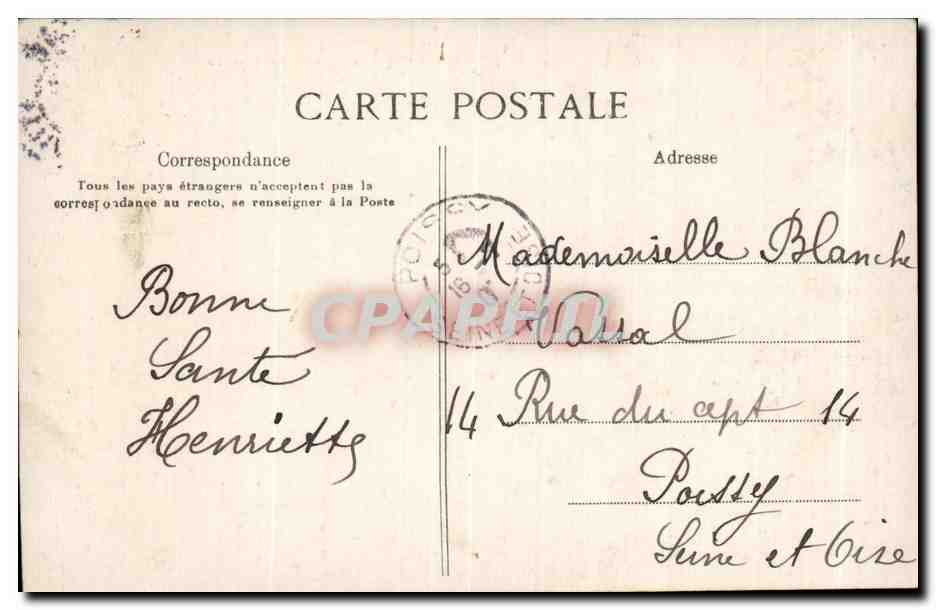 CARTE POSTALE
Correspondance
Tous les pays étrangers n'acceptent pas la
correspondance au recto, se renseigner à la Poste
Adresse
POISSY
SEINE-ET-OISE
16
CPARHIL
Bonne
Sante
Henriette
Mademoiselle Blanche
Vassal
14 Rue du cept 14
Poissy
Seine et Oise